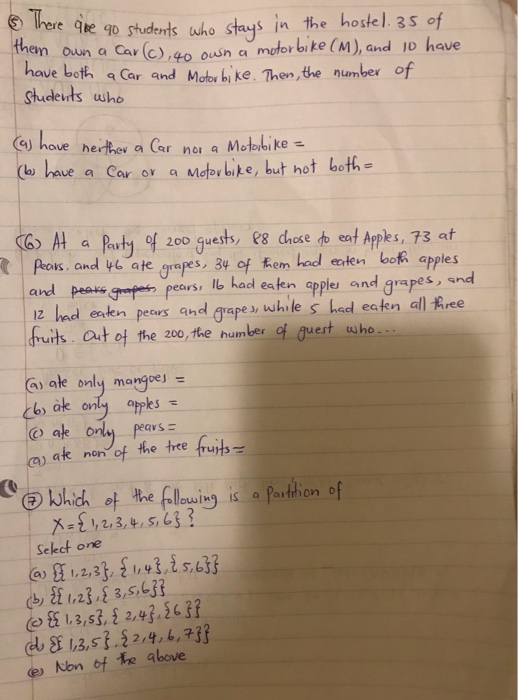 ⑤ There are 90 students who stays in the hostel. 35 of
them own a Car (C), 40 own a motorbike (M), and 10 have
have both a Car and Motorbike. Then, the number of
Students who
(a) have neither a Car nor a Motorbike =
(b) have a Car or a Motorbike, but not both =
(6) At a Party of 200 guests, 88 chose to eat Apples, 73 at
Pears. and 46 ate grapes, 34 of them had eaten both apples
and pears grapes pears, 16 had eaten apples and grapes, and
12 had eaten pears and grapes, while 5 had eaten all three
fruits. Out of the 200, the number of guest who...
(a) ate only mangoes =
(b) ate only apples =
(c) ate only pears =
(a) ate non of the tree fruits =
⑦ Which of the following is a partition of
X = {1,2,3,4,5,6} ?
Select one
(a) {{1,2,3}, {1,4}, {5,6}}
(b) {{1,2}, {3,5,6}}
(c) {{1,3,5}, {2,4}, {6}}
(d) {{1,3,5}, {2,4,6,7}}
(e) Non of the above